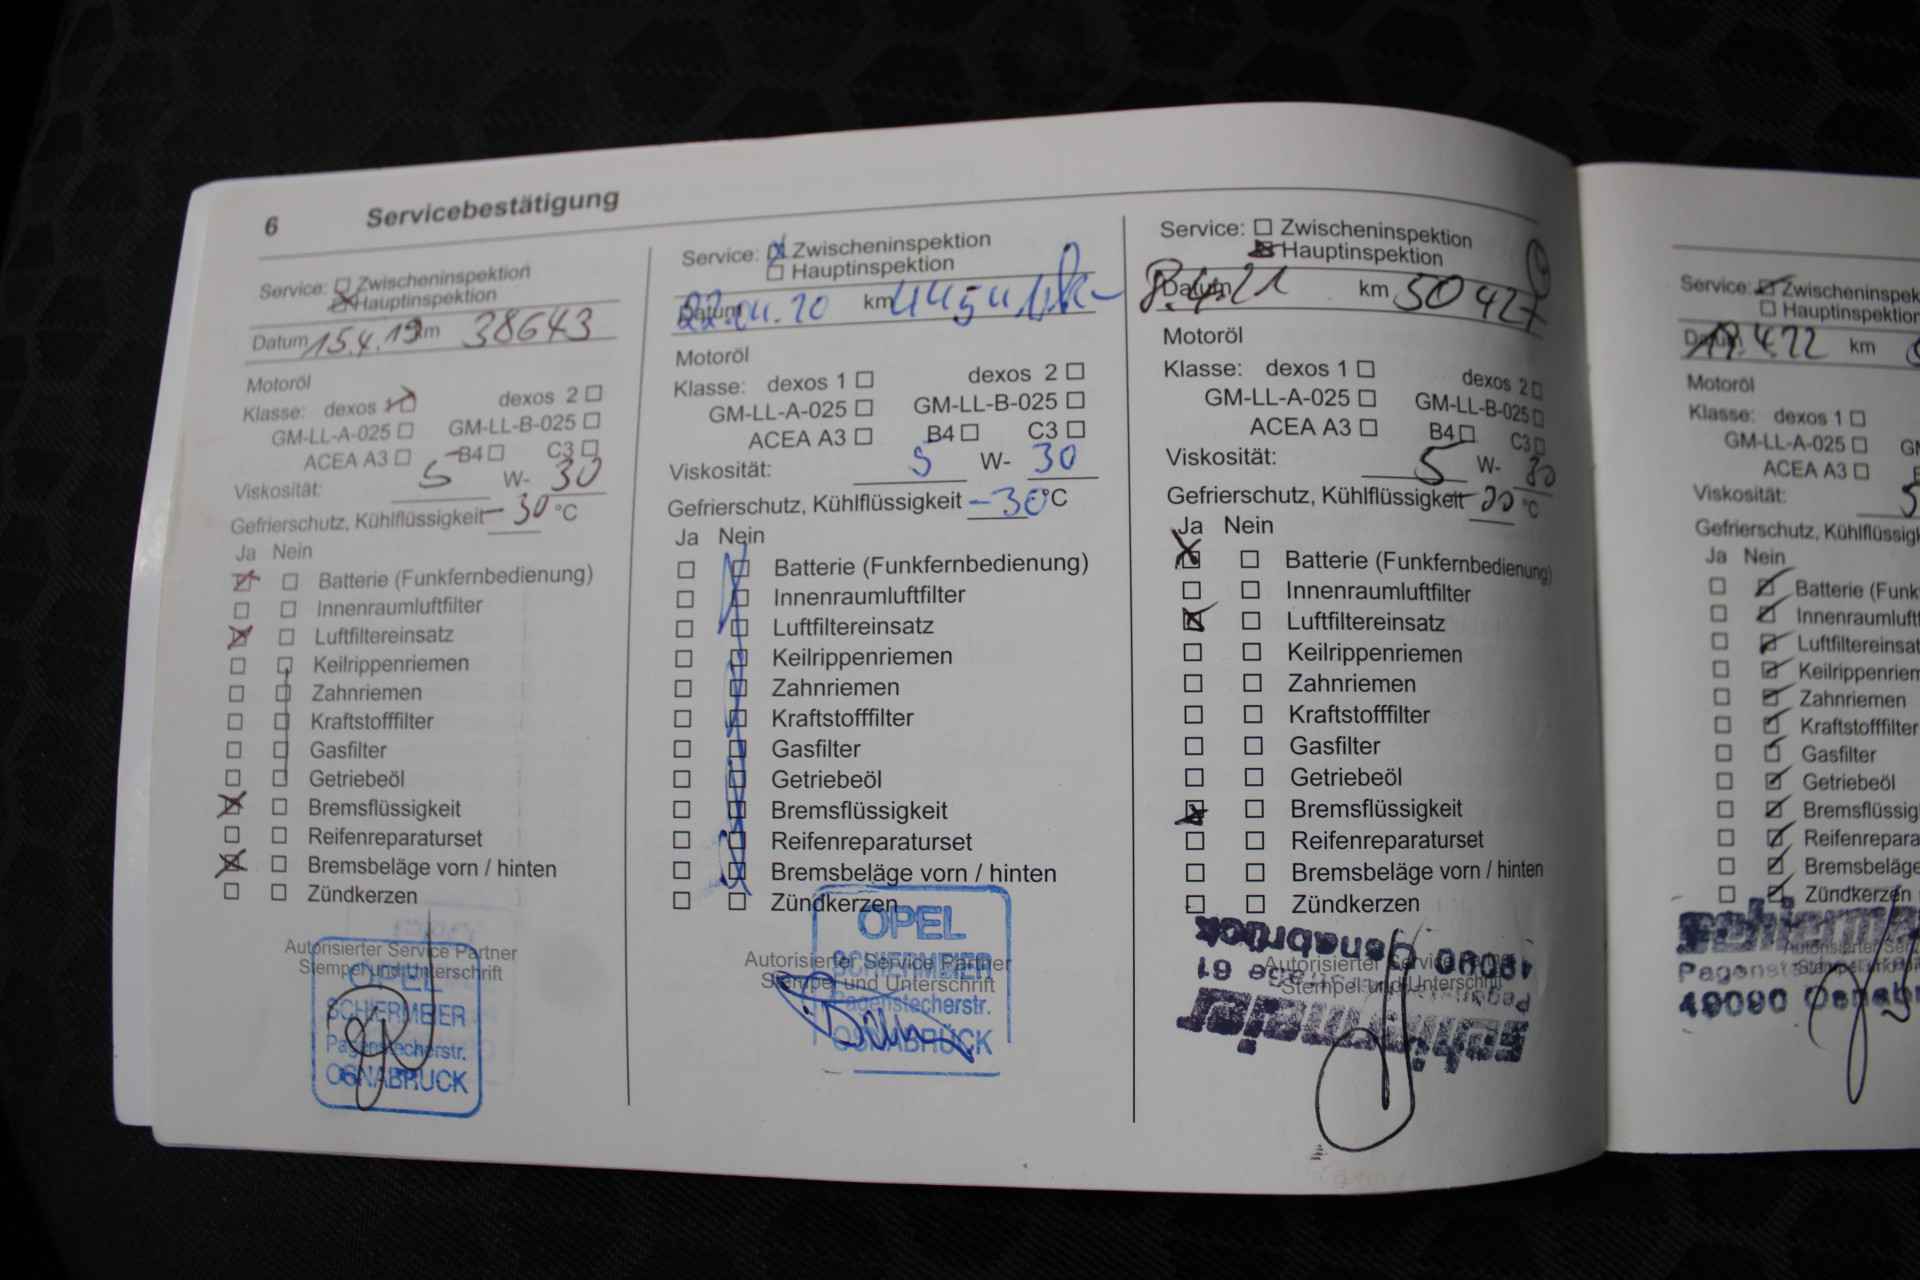 6 Servicebestätigung
Service: Zwischeninspektion
Hauptinspektion
Datum 15.4.19 km 38643
Motoröl
Klasse: dexos 1 dexos 2
GM-LL-A-025 GM-LL-B-025
ACEA A3 B4 C3
Viskosität: 5 W- 30
Gefrierschutz, Kühlflüssigkeit -30 °C
Ja Nein
Batterie (Funkfernbedienung)
Innenraumluftfilter
Luftfiltereinsatz
Keilrippenriemen
Zahnriemen
Kraftstofffilter
Gasfilter
Getriebeöl
Bremsflüssigkeit
Reifenreparaturset
Bremsbeläge vorn / hinten
Zündkerzen
Autorisierter Service Partner
Stempel und Unterschrift
OPEL
SCHIERMEIER
Pagenstecherstr.
OSNABRÜCK
Service: Zwischeninspektion
Hauptinspektion
Datum 22.04.20 km
Motoröl
Klasse: dexos 1 dexos 2
GM-LL-A-025 GM-LL-B-025
ACEA A3 B4 C3
Viskosität: 5 W- 30
Gefrierschutz, Kühlflüssigkeit -30 °C
Ja Nein
Batterie (Funkfernbedienung)
Innenraumluftfilter
Luftfiltereinsatz
Keilrippenriemen
Zahnriemen
Kraftstofffilter
Gasfilter
Getriebeöl
Bremsflüssigkeit
Reifenreparaturset
Bremsbeläge vorn / hinten
Zündkerzen
Autorisierter Service Partner
Stempel und Unterschrift
OPEL
SCHIERMEIER
Pagenstecherstr.
OSNABRÜCK
Service: Zwischeninspektion
Hauptinspektion
Datum 8.4.21 km 50427
Motoröl
Klasse: dexos 1 dexos 2
GM-LL-A-025 GM-LL-B-025
ACEA A3 B4 C3
Viskosität: 5 W- 30
Gefrierschutz, Kühlflüssigkeit °C
Ja Nein
Batterie (Funkfernbedienung)
Innenraumluftfilter
Luftfiltereinsatz
Keilrippenriemen
Zahnriemen
Kraftstofffilter
Gasfilter
Getriebeöl
Bremsflüssigkeit
Reifenreparaturset
Bremsbeläge vorn / hinten
Zündkerzen
Autorisierter Service
Stempel und Unterschrift
Schiermeier
49090 Osnabrück
Service: Zwischeninspek
Hauptinspektion
Datum 4.22 km
Motoröl
Klasse: dexos 1
GM-LL-A-025
ACEA A3
Viskosität: 5
Gefrierschutz, Kühlflüssigk
Ja Nein
Batterie (Funk
Innenraumluft
Luftfiltereinsat
Keilrippenriem
Zahnriemen
Kraftstofffilter
Gasfilter
Getriebeöl
Bremsflüssig
Reifenrepara
Bremsbeläge
Zündkerzen
49090 Osnabr